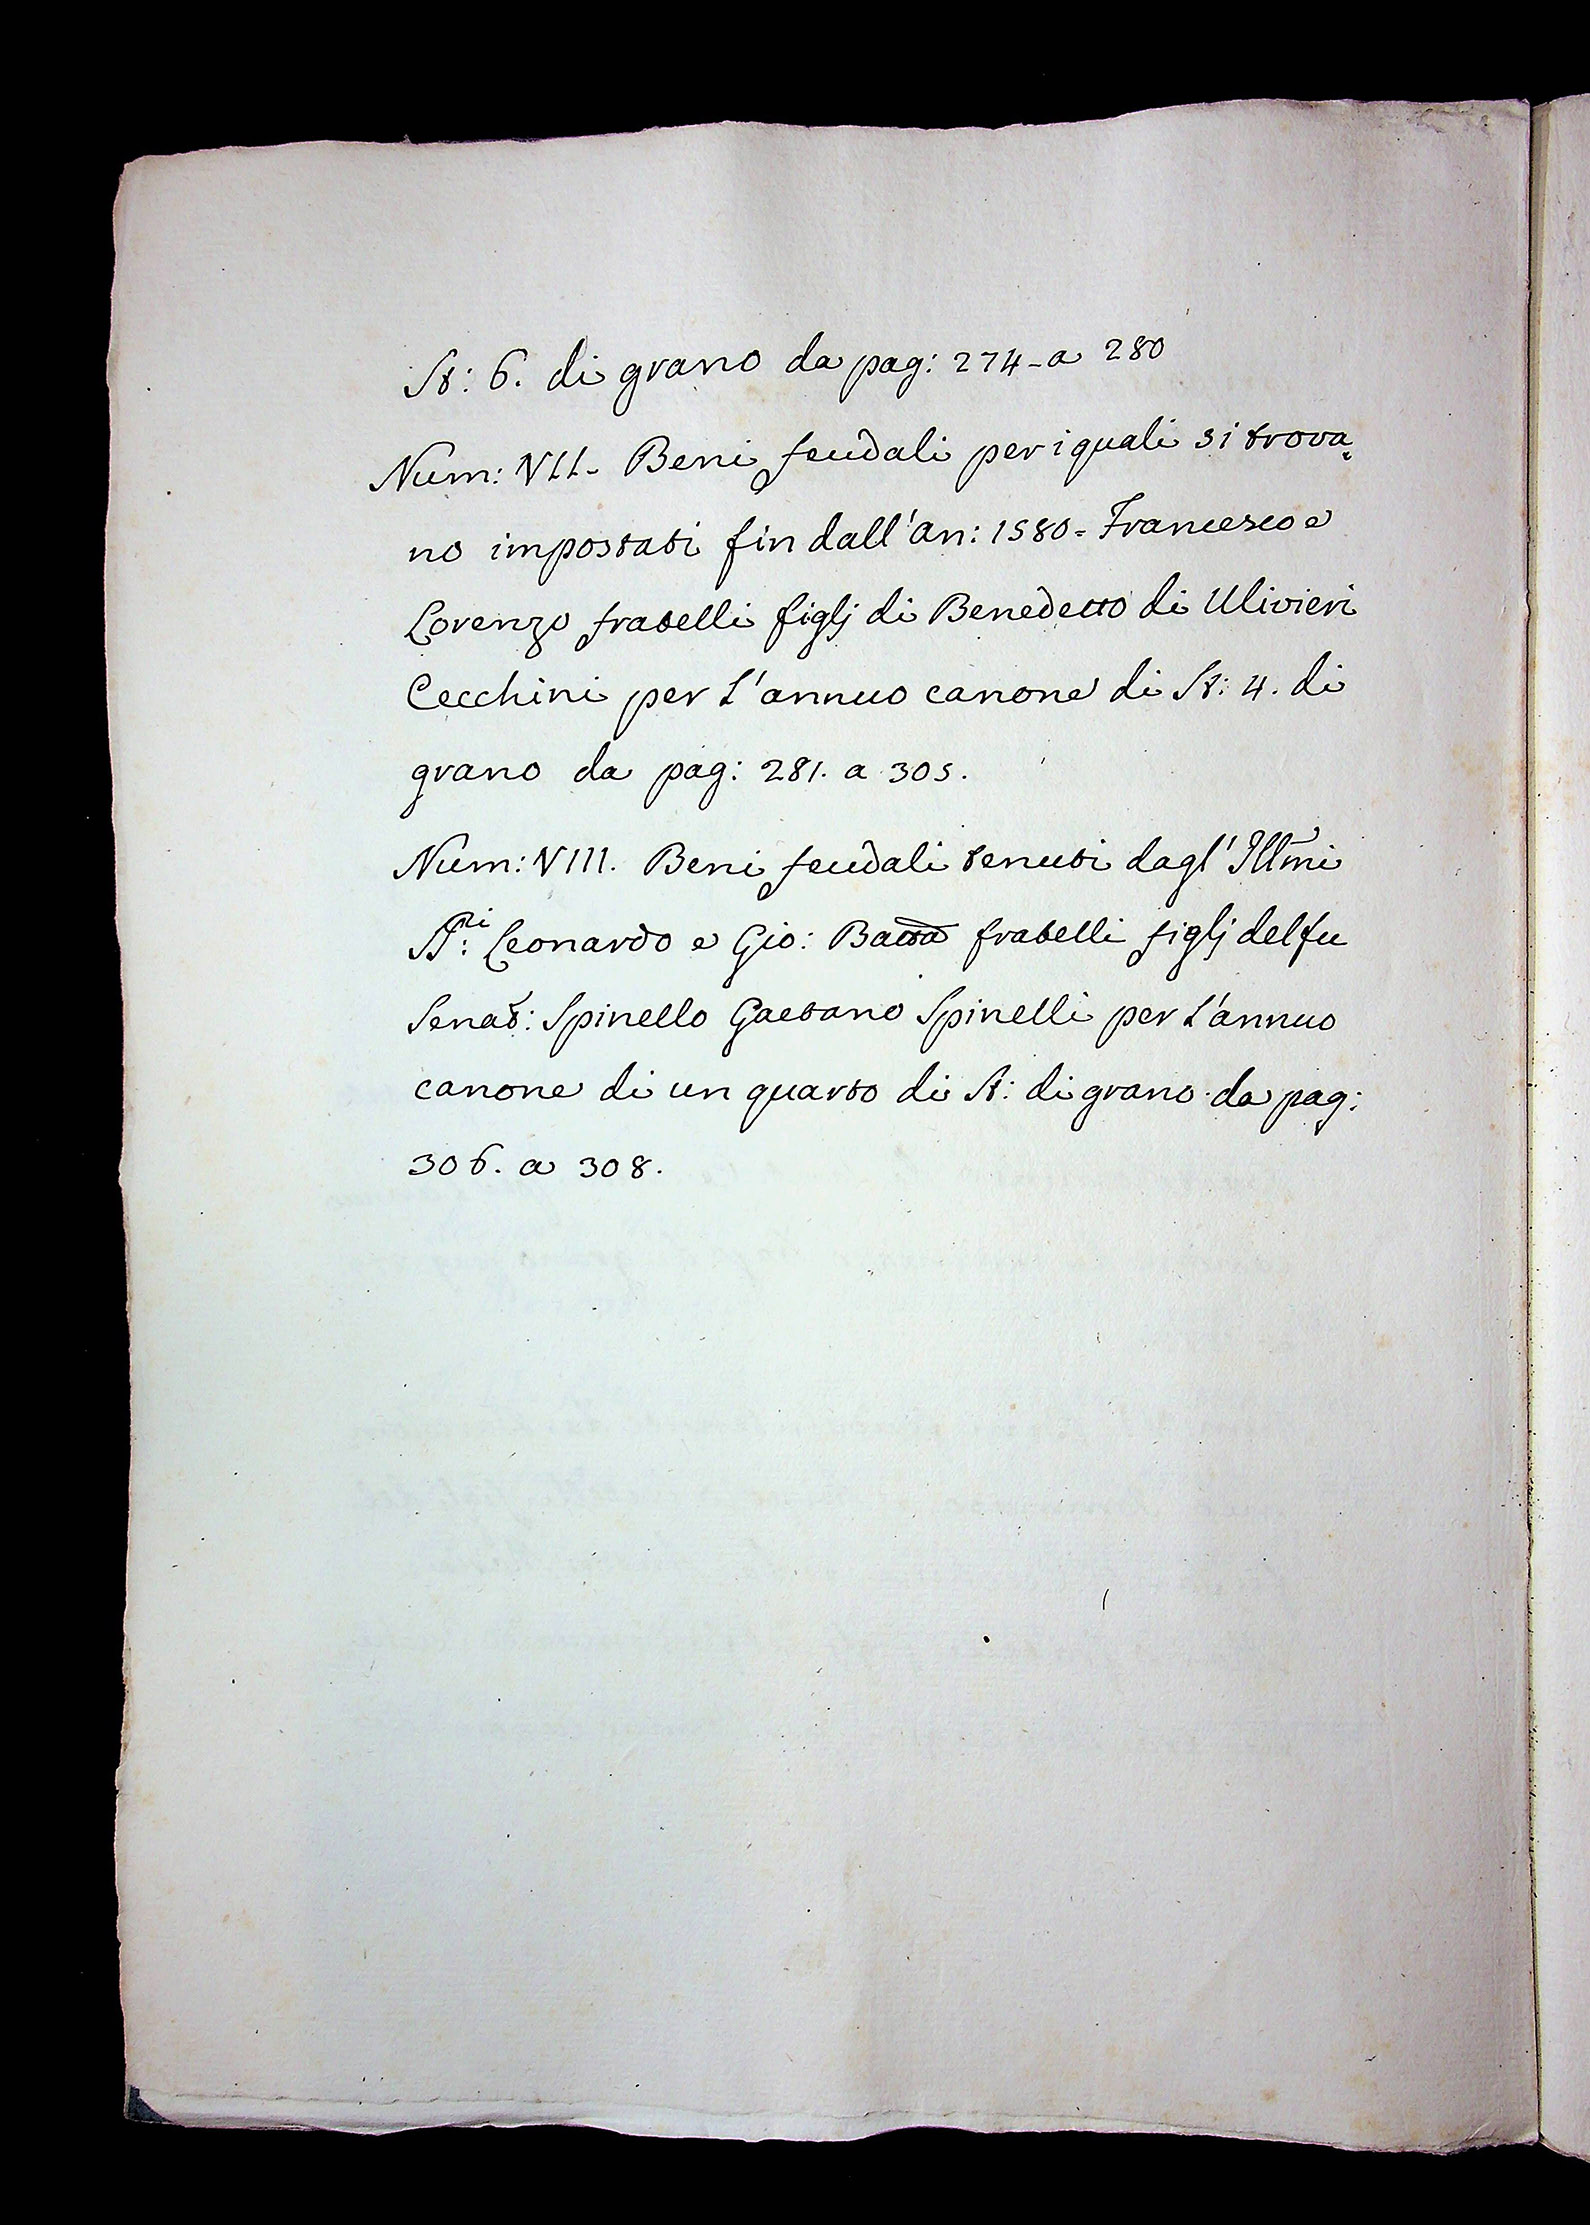 St: 6. di grano da pag: 274 - a 280
Num: VII - Beni feudali per i quali si trova=
no impostati fin dall'an: 1580 = Francesco e
Lorenzo fratelli figlj di Benedetto di Ulivieri
Cecchini per l'annuo canone di St: 4. di
grano da pag: 281. a 305.
Num: VIII. Beni feudali tenuti dagl' Illmi
SS:ri Leonardo e Gio: Batta fratelli figlj del fu
Senat: Spinello Gaetano Spinelli per l'annuo
canone di un quarto di St: di grano da pag:
306. a 308.